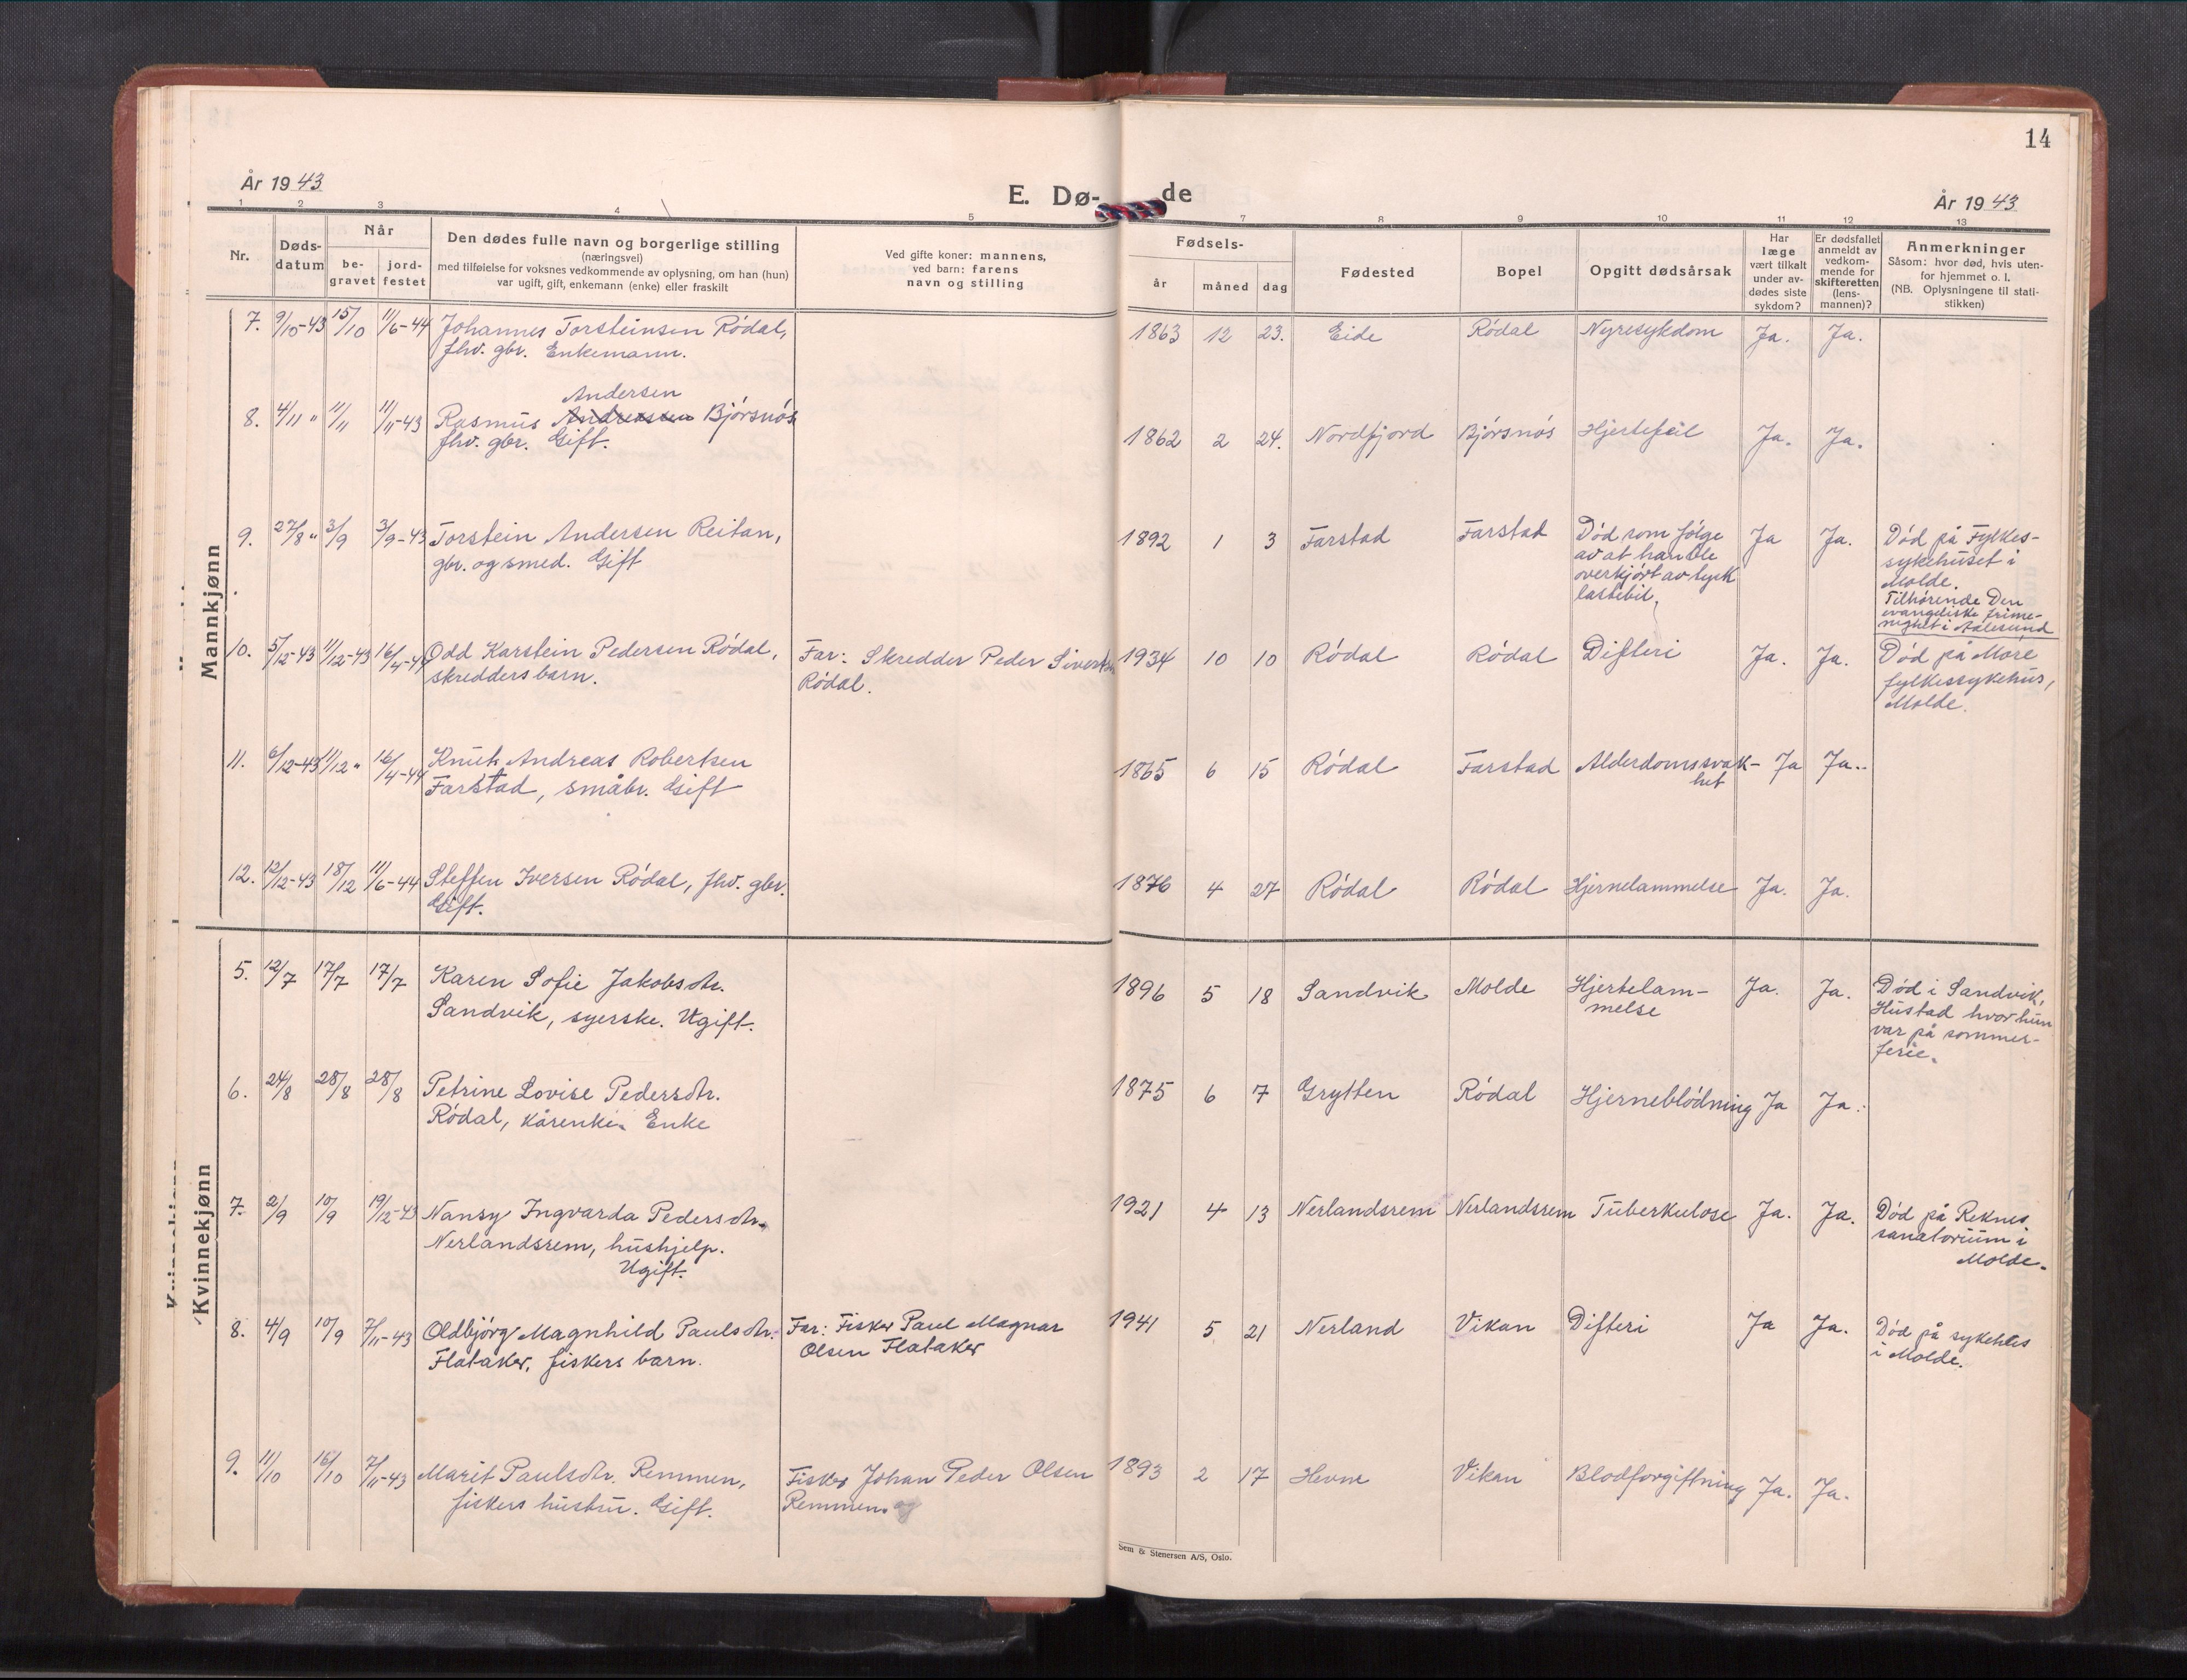 14
År 1943
E. Dø-
de
År 1943
1 2 3 4 5 7 8 9 10 11 12 13
Nr.
Døds-
datum
Når
be-
gravet
jord-
festet
Den dødes fulle navn og borgerlige stilling
(næringsvei)
med tilføielse for voksnes vedkommende av oplysning, om han (hun)
var ugift, gift, enkemann (enke) eller fraskilt
Ved gifte koner: mannens,
ved barn: farens
navn og stilling
Fødsels-
år måned dag
Fødested
Bopel
Opgitt dødsårsak
Har
læge
vært tilkalt
under av-
dødes siste
sykdom?
Er dødsfallet
anmeldt av
vedkom-
mende for
skifteretten
(lens-
mannen)?
Anmerkninger
Såsom: hvor død, hvis uten-
for hjemmet o. l.
(NB. Oplysningene til stati-
stikken)
Mannkjønn
7. 9/10-43 15/10 11/6-44 Johannes Torsteinsen Rödal, 1863 12 23. Eide Rödal Nyresykdom Ja. Ja.
fhv. gbr. Enkemann.
Andersen
8. 4/11 " 11/11 11/11-43 Rasmus Andreassen Björsnös 1862 2 24. Nordfjord Björsnös Hjertefeil Ja. Ja.
fhv. gbr. Gift.
9. 27/8 " 3/9 3/9-43 Torstein Andersen Reitan, 1892 1 3 Farstad Farstad Död som fölge Ja Ja. Död på Fylkes-
gbr. og smed. Gift av at han ble sykehuset i
overkjört av tysk Molde.
lastebil. Tilhörende Den
evangeliske frime-
nighet i Aalesund
10. 5/12-43 11/12-43 16/4-44 Odd Karstein Pedersen Rödal, Far: Skredder Peder Sivertsen 1934 10 10 Rödal Rödal Difteri Ja. Ja. Död på Möre
skreddersbarn. Rödal. fylkessykehus,
Molde.
11. 6/12-43 11/12 " 16/4-44 Knut Andreas Robertsen 1865 6 15 Rödal Farstad Alderdomssvak- Ja Ja.
Farstad, småbr. Gift het
12. 12/12-43 18/12 11/6-44 Steffen Iversen Rödal, fhv. gbr. 1876 4 27 Rödal Rödal Hjernelammelse Ja. Ja.
Gift.
Kvinnekjønn
5. 12/7 17/7 17/7 Karen Sofie Jakobsdtr. 1896 5 18 Sandvik Molde Hjertelam- Ja. Ja. Död i Sandvik,
Sandvik, syerske. Ugift. melse Hustad hvor hun
var på sommer-
ferie.
6. 24/8 28/8 28/8 Petrine Lovise Pedersdtr. 1875 6 7 Grytten Rödal Hjerneblödning Ja Ja.
Rödal, kårenke. Enke
7. 2/9 10/9 19/12-43 Nansy Ingvarda Pedersdtr. 1921 4 13 Nerlandsrem Nerlandsrem Tuberkulose Ja. Ja. Död på Reknes
Nerlandsrem, hushjelp. sanatorium i
Ugift. Molde.
8. 4/9 10/9 7/11-43 Oldbjörg Magnhild Paulsdtr. Far: Fisker Paul Magnar 1941 5 21 Nerland Vikan Difteri Ja Ja. Död på sykehus
Flataker, fiskers barn. Olsen Flataker i Molde.
9. 11/10 16/10 7/11-43 Marit Paulsdtr. Remmen, Fisker Johan Peder Olsen 1893 2 17 Hevne Vikan Blodforgiftning Ja. Ja.
fiskers hustru. Gift. Remmen.
Sem & Stenersen A/S, Oslo.